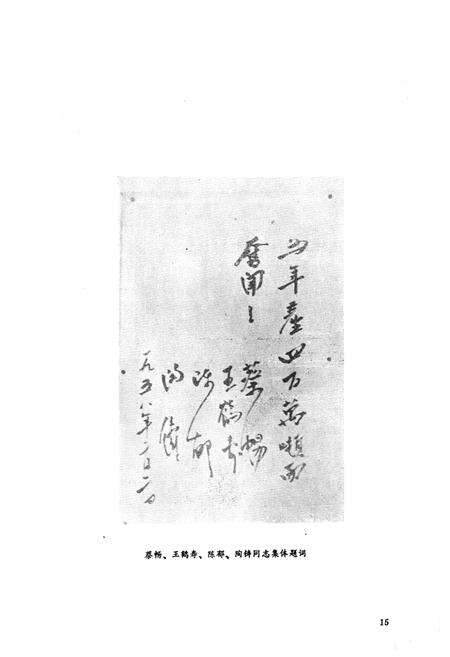 为年產四百萬噸而
奮闘！
蔡暢
王鶴寿
陈郁
陶鑄
一九五八年二月二日
蔡畅、王鹤寿、陈郁、陶铸同志集体题词
15